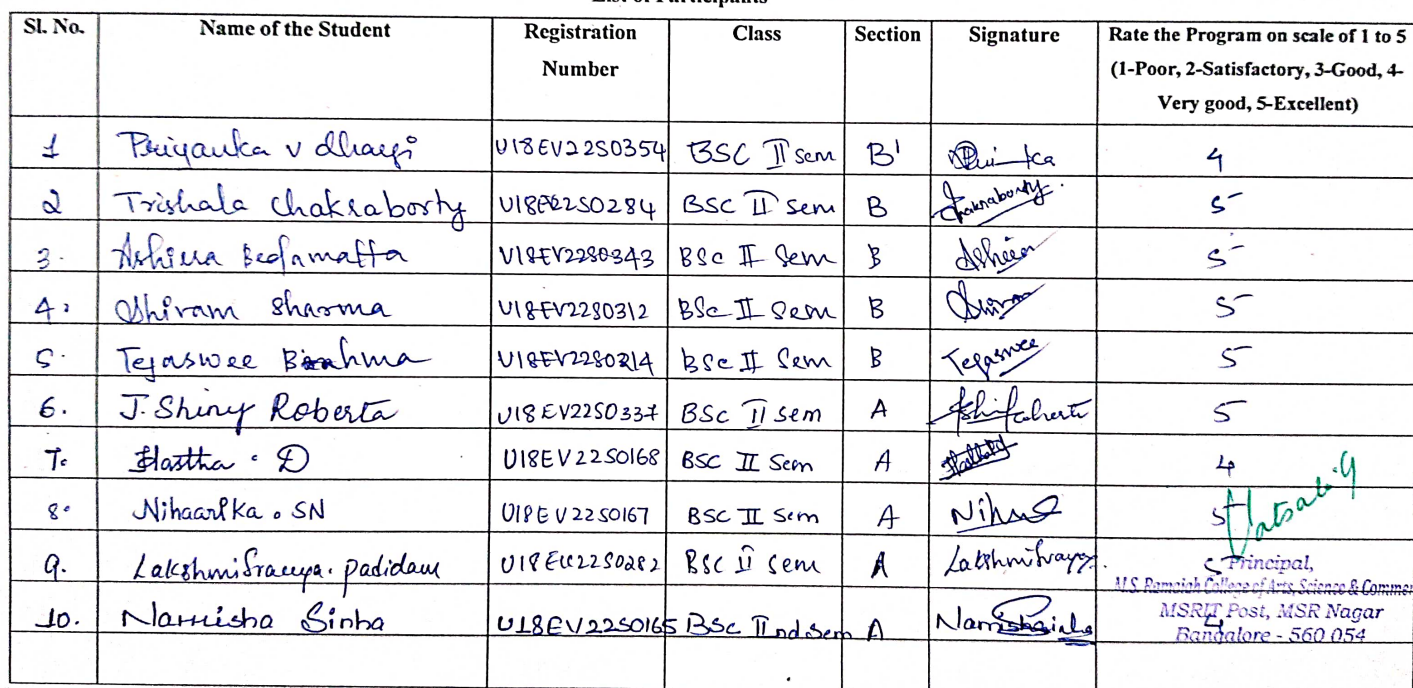 List of Participants
Sl. No. Name of the Student Registration Number Class Section Signature Rate the Program on scale of 1 to 5 (1-Poor, 2-Satisfactory, 3-Good, 4-Very good, 5-Excellent)
1 Priyanka v U18EV22S0354 BSC II sem B' 4
2 Trishala Chakraborty U18EV22S0284 BSC II sem B Chakraborty. 5
3. Ashima U18EV22S0343 BSc II Sem B 5
4. Shiram Sharma U18EV22S0312 BSc II Sem B 5
5. Tejaswee Brahma U18EV22S0214 BSc II Sem B Tejaswee 5
6. J. Shiny Roberta U18EV22S0337 BSc II sem A 5
7. Hastha . D U18EV22S0168 BSC II Sem A 4
8. Nihaarika . SN U18EV22S0167 BSC II Sem A 5
9. Padidam BSC II sem A 5
10. Namisha Sinha U18EV22S0165 BSc IInd sem A 4
Principal,
M.S. Ramaiah College of Arts, Science & Commer
MSRIT Post, MSR Nagar
Bangalore - 560 054